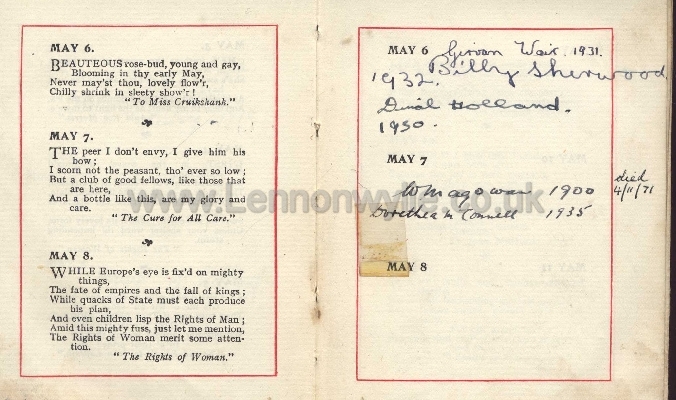 MAY 6.
BEAUTEOUS rose-bud, young and gay,
Blooming in thy early May,
Never may'st thou, lovely flow'r,
Chilly shrink in sleety show'r!
"To Miss Cruikshank."
MAY 7.
THE peer I don't envy, I give him his
bow;
I scorn not the peasant, tho' ever so low;
But a club of good fellows, like those that
are here,
And a bottle like this, are my glory and
care.
"The Cure for All Care."
MAY 8.
WHILE Europe's eye is fix'd on mighty
things,
The fate of empires and the fall of kings;
While quacks of State must each produce
his plan,
And even children lisp the Rights of Man;
Amid this mighty fuss, just let me mention,
The Rights of Woman merit some atten-
tion.
"The Rights of Woman."
MAY 6 Girvan Wait. 1931.
1932. Billy Sherwood
Holland.
1930.
MAY 7
died
W Magowan 1900 4/11/71
Dorethea M Connell 1935
MAY 8
www.Lennonwylie.co.uk